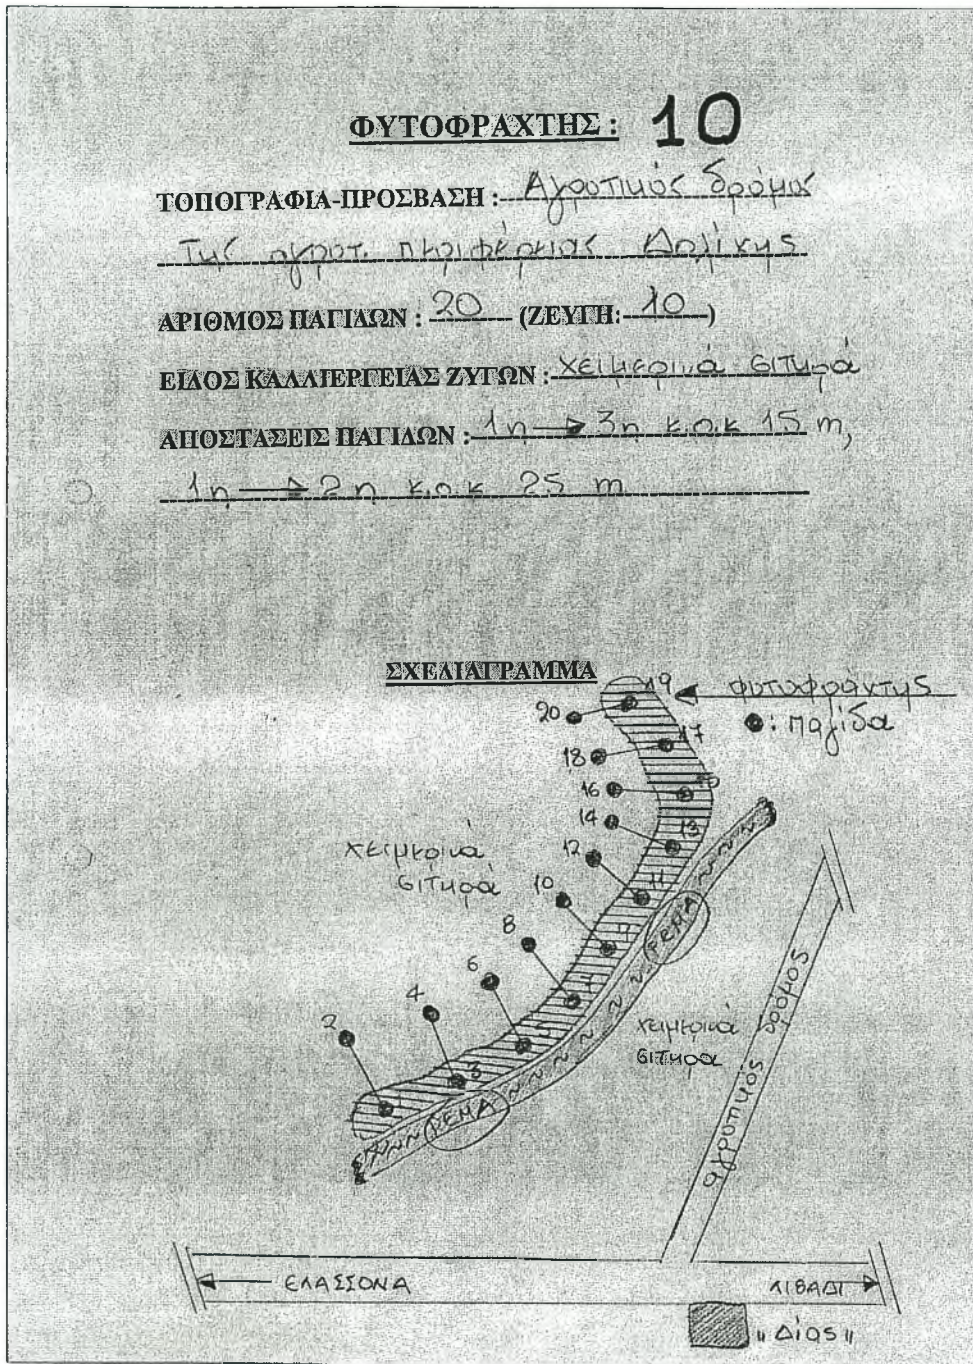 ΦΥΤΟΦΡΑΧΤΗΣ : 10
ΤΟΠΟΓΡΑΦΙΑ-ΠΡΟΣΒΑΣΗ : Αγροτικός δρόμος
της αγροτ. περιφέρειας Δολίχης
ΑΡΙΘΜΟΣ ΠΑΓΙΔΩΝ : 20 (ΖΕΥΓΗ: 10)
ΕΙΔΟΣ ΚΑΛΛΙΕΡΓΕΙΑΣ ΖΥΓΩΝ : χειμερινά σιτηρά
ΑΠΟΣΤΑΣΕΙΣ ΠΑΓΙΔΩΝ : 1η → 3η κ.ο.κ 15 m,
1η → 2η κ.ο.κ 25 m
ΣΧΕΔΙΑΓΡΑΜΜΑ
19
← φυτοφράχτης
20
: παγίδα
18 17
16 15
14 13
χειμερινά
σιτηρά
12 11
10 9
ΡΕΜΑ
8 7
6 5
4 3
2 1
ΡΕΜΑ
χειμερινά
σιτηρά
αγροτικός δρόμος
← ΕΛΑΣΣΟΝΑ
ΛΙΒΑΔΙ →
"ΔΙΟΣ"